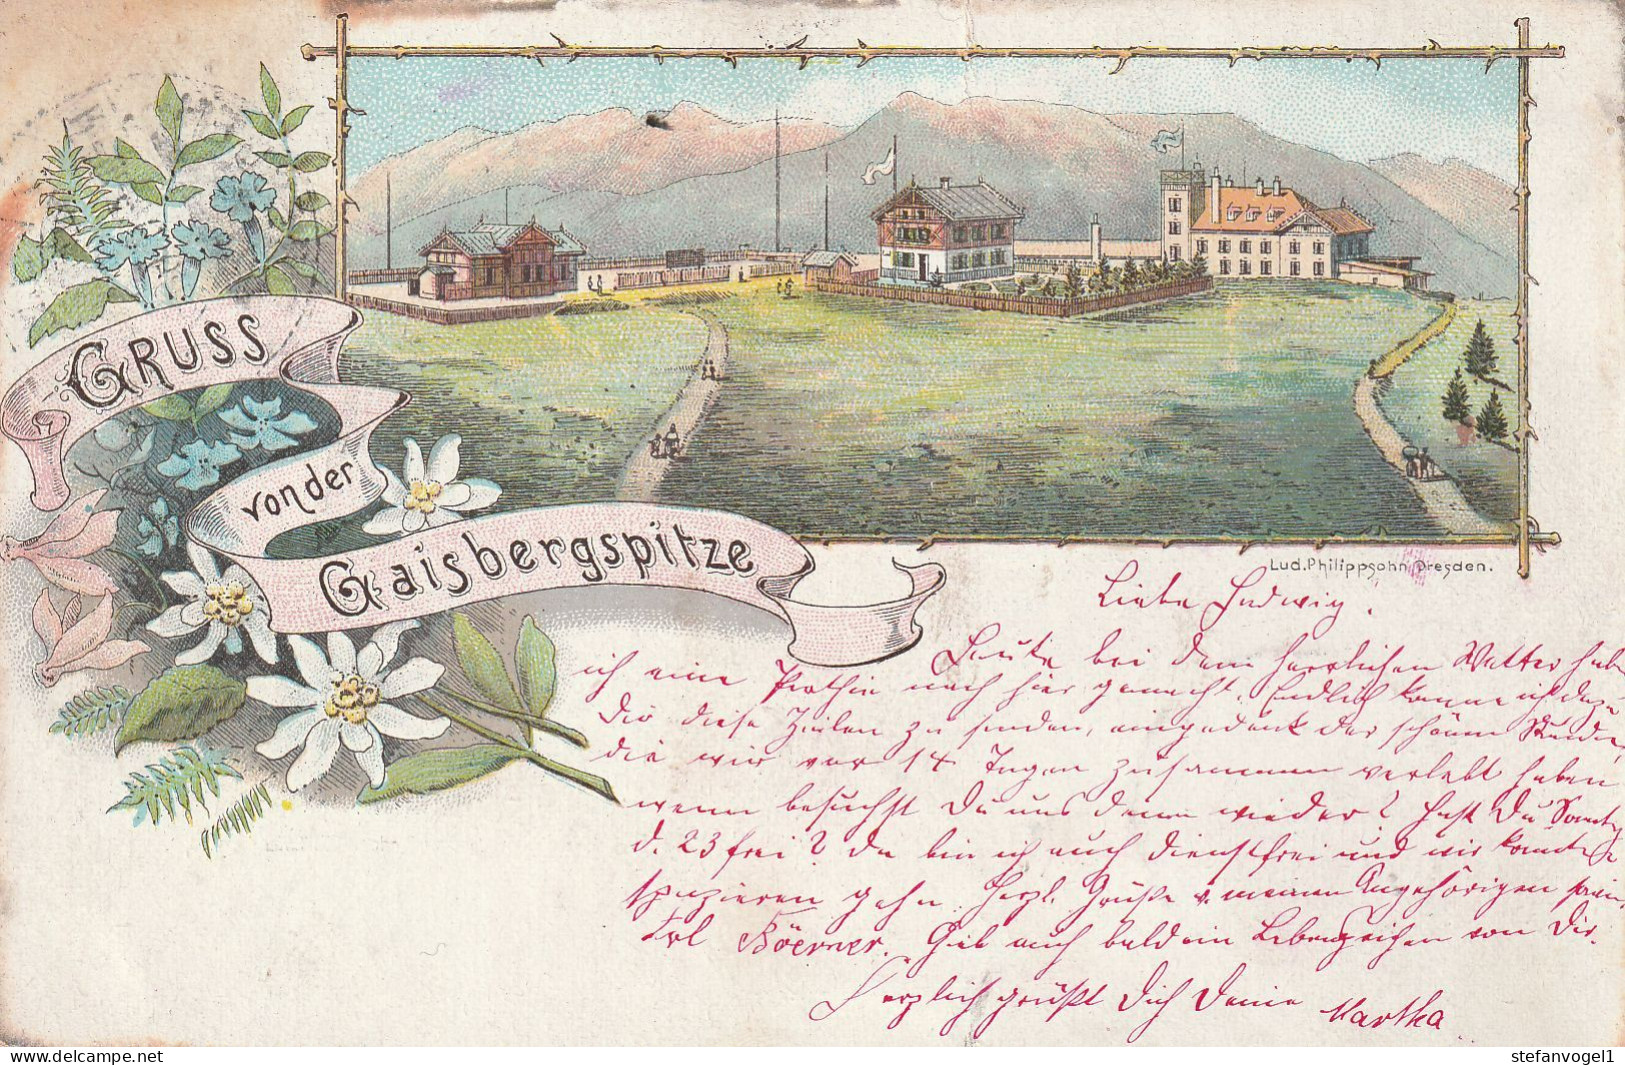 GRUSS
von der
Gaisbergspitze
Lud. Philippsohn, Dresden.
Liebe Hedwig!
Heute bei dem herrlichen Wetter habe
ich eine Parthie nach hier gemacht. Endlich komme ich dazu
Dir diese Zeilen zu senden, eingedenk der schönen Stunden,
die wir vor 14 Tagen zusammen verlebt haben
wenn besuchst Du uns denn wieder? Hast Du Sonntag
d. 23 frei? da bin ich auch dienstfrei und wir könnten
spazieren gehn. Herzl. Grüße v. meinen Angehörigen
Frl Böerner. Gieb auch bald ein Lebenszeichen von Dir.
Herzlich grüßt Dich Deine Martha
stefanvogel1
https://www.delcampe.net